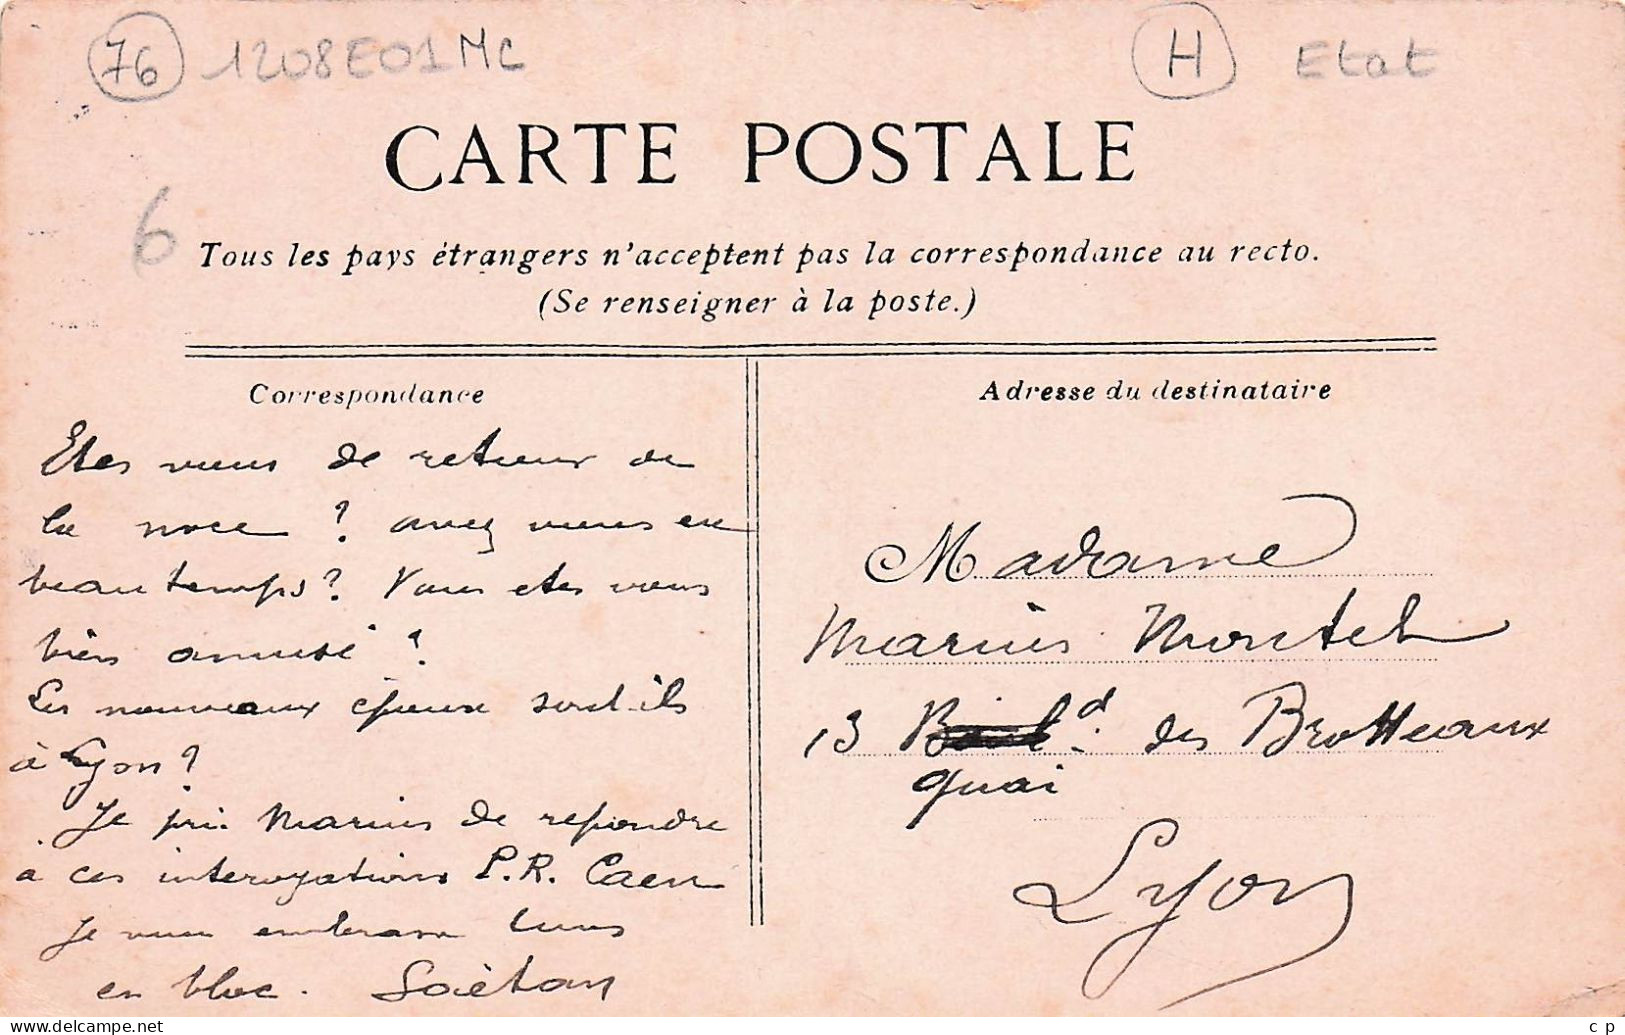 76 1208E01MC H Etat
CARTE POSTALE
6
Tous les pays étrangers n'acceptent pas la correspondance au recto.
(Se renseigner à la poste.)
Correspondance
Etes vous de retour de
la noce ? avez vous eu
beau temps ? Vous etes vous
bien amusé ?
Les nouveaux époux sont-ils
à Lyon ?
Je prie Marius de repondre
à ces interogations P.R. Caen
Je vous embrasse tous
en bloc. Gaëtan
Adresse du destinataire
Madame
Marius Montel
13 B d. des Brotteaux
quai
Lyon
cp
www.delcampe.net